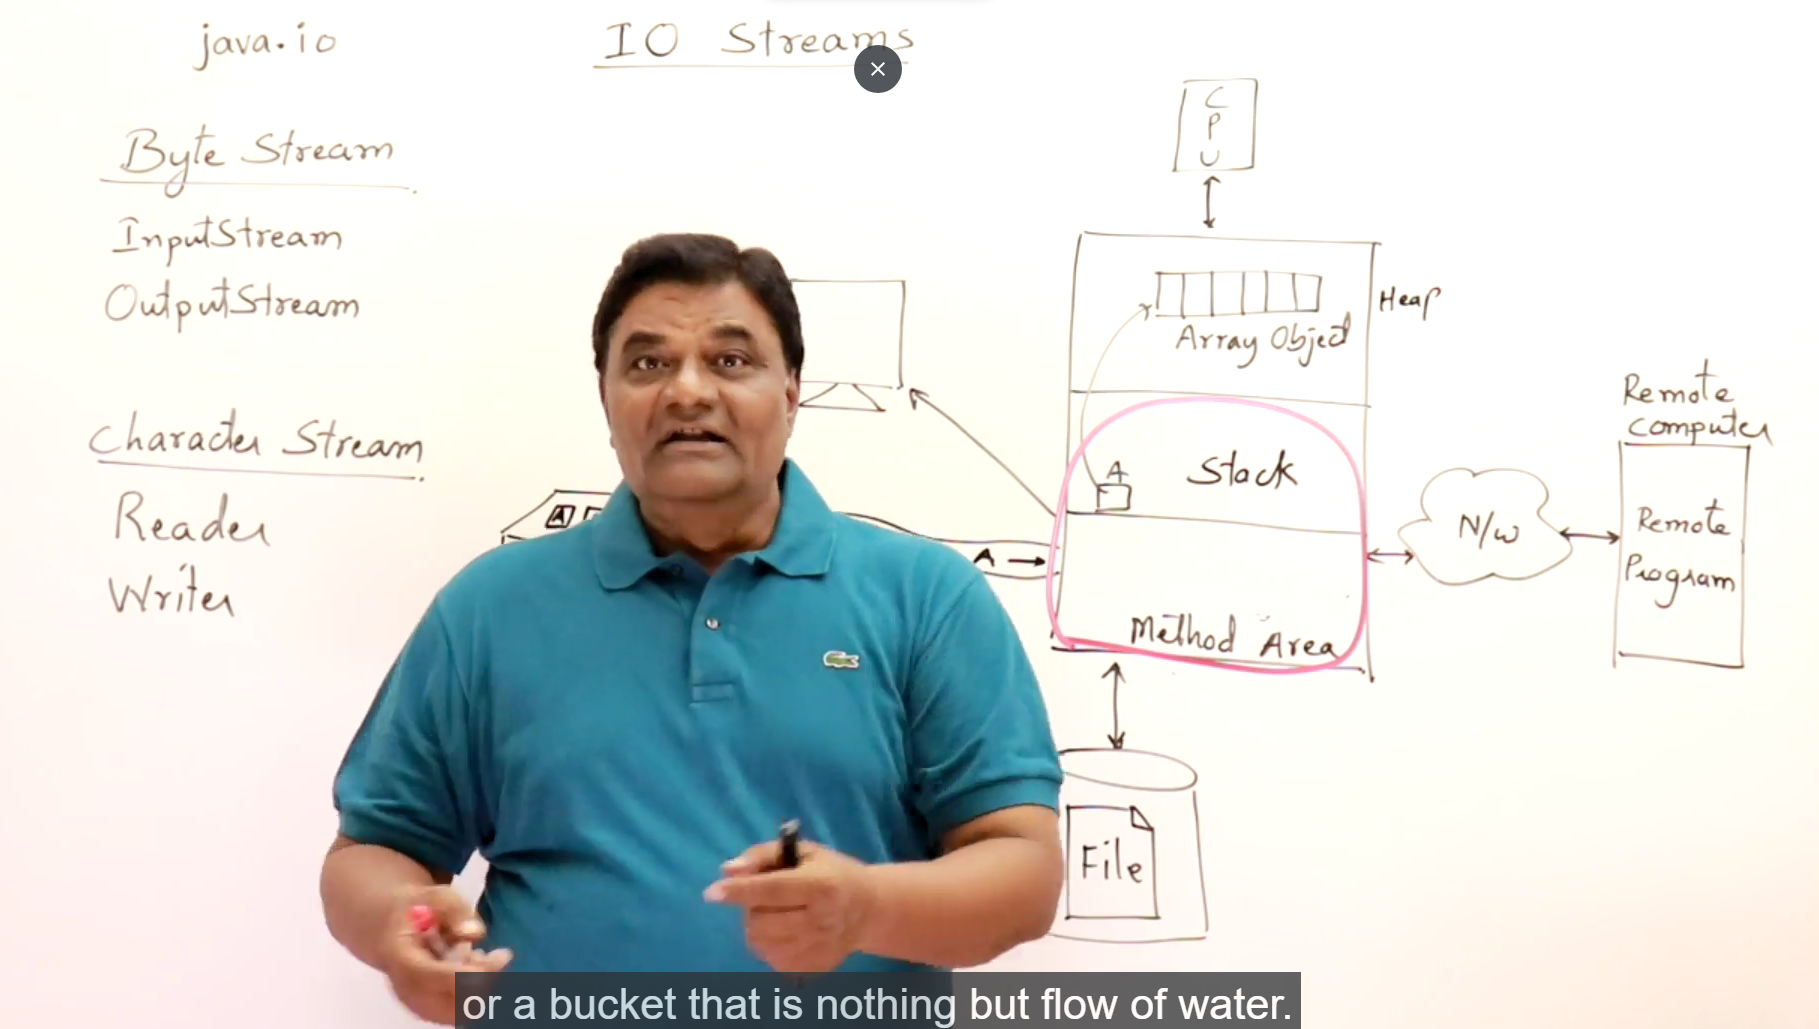 java.io
IO Streams
Byte Stream
InputStream
OutputStream
Character Stream
Reader
Writer
C
P
U
Heap
Array Object
A
Stack
Method Area
A
A
File
N/W
Remote
Computer
Remote
Program
or a bucket that is nothing but flow of water.